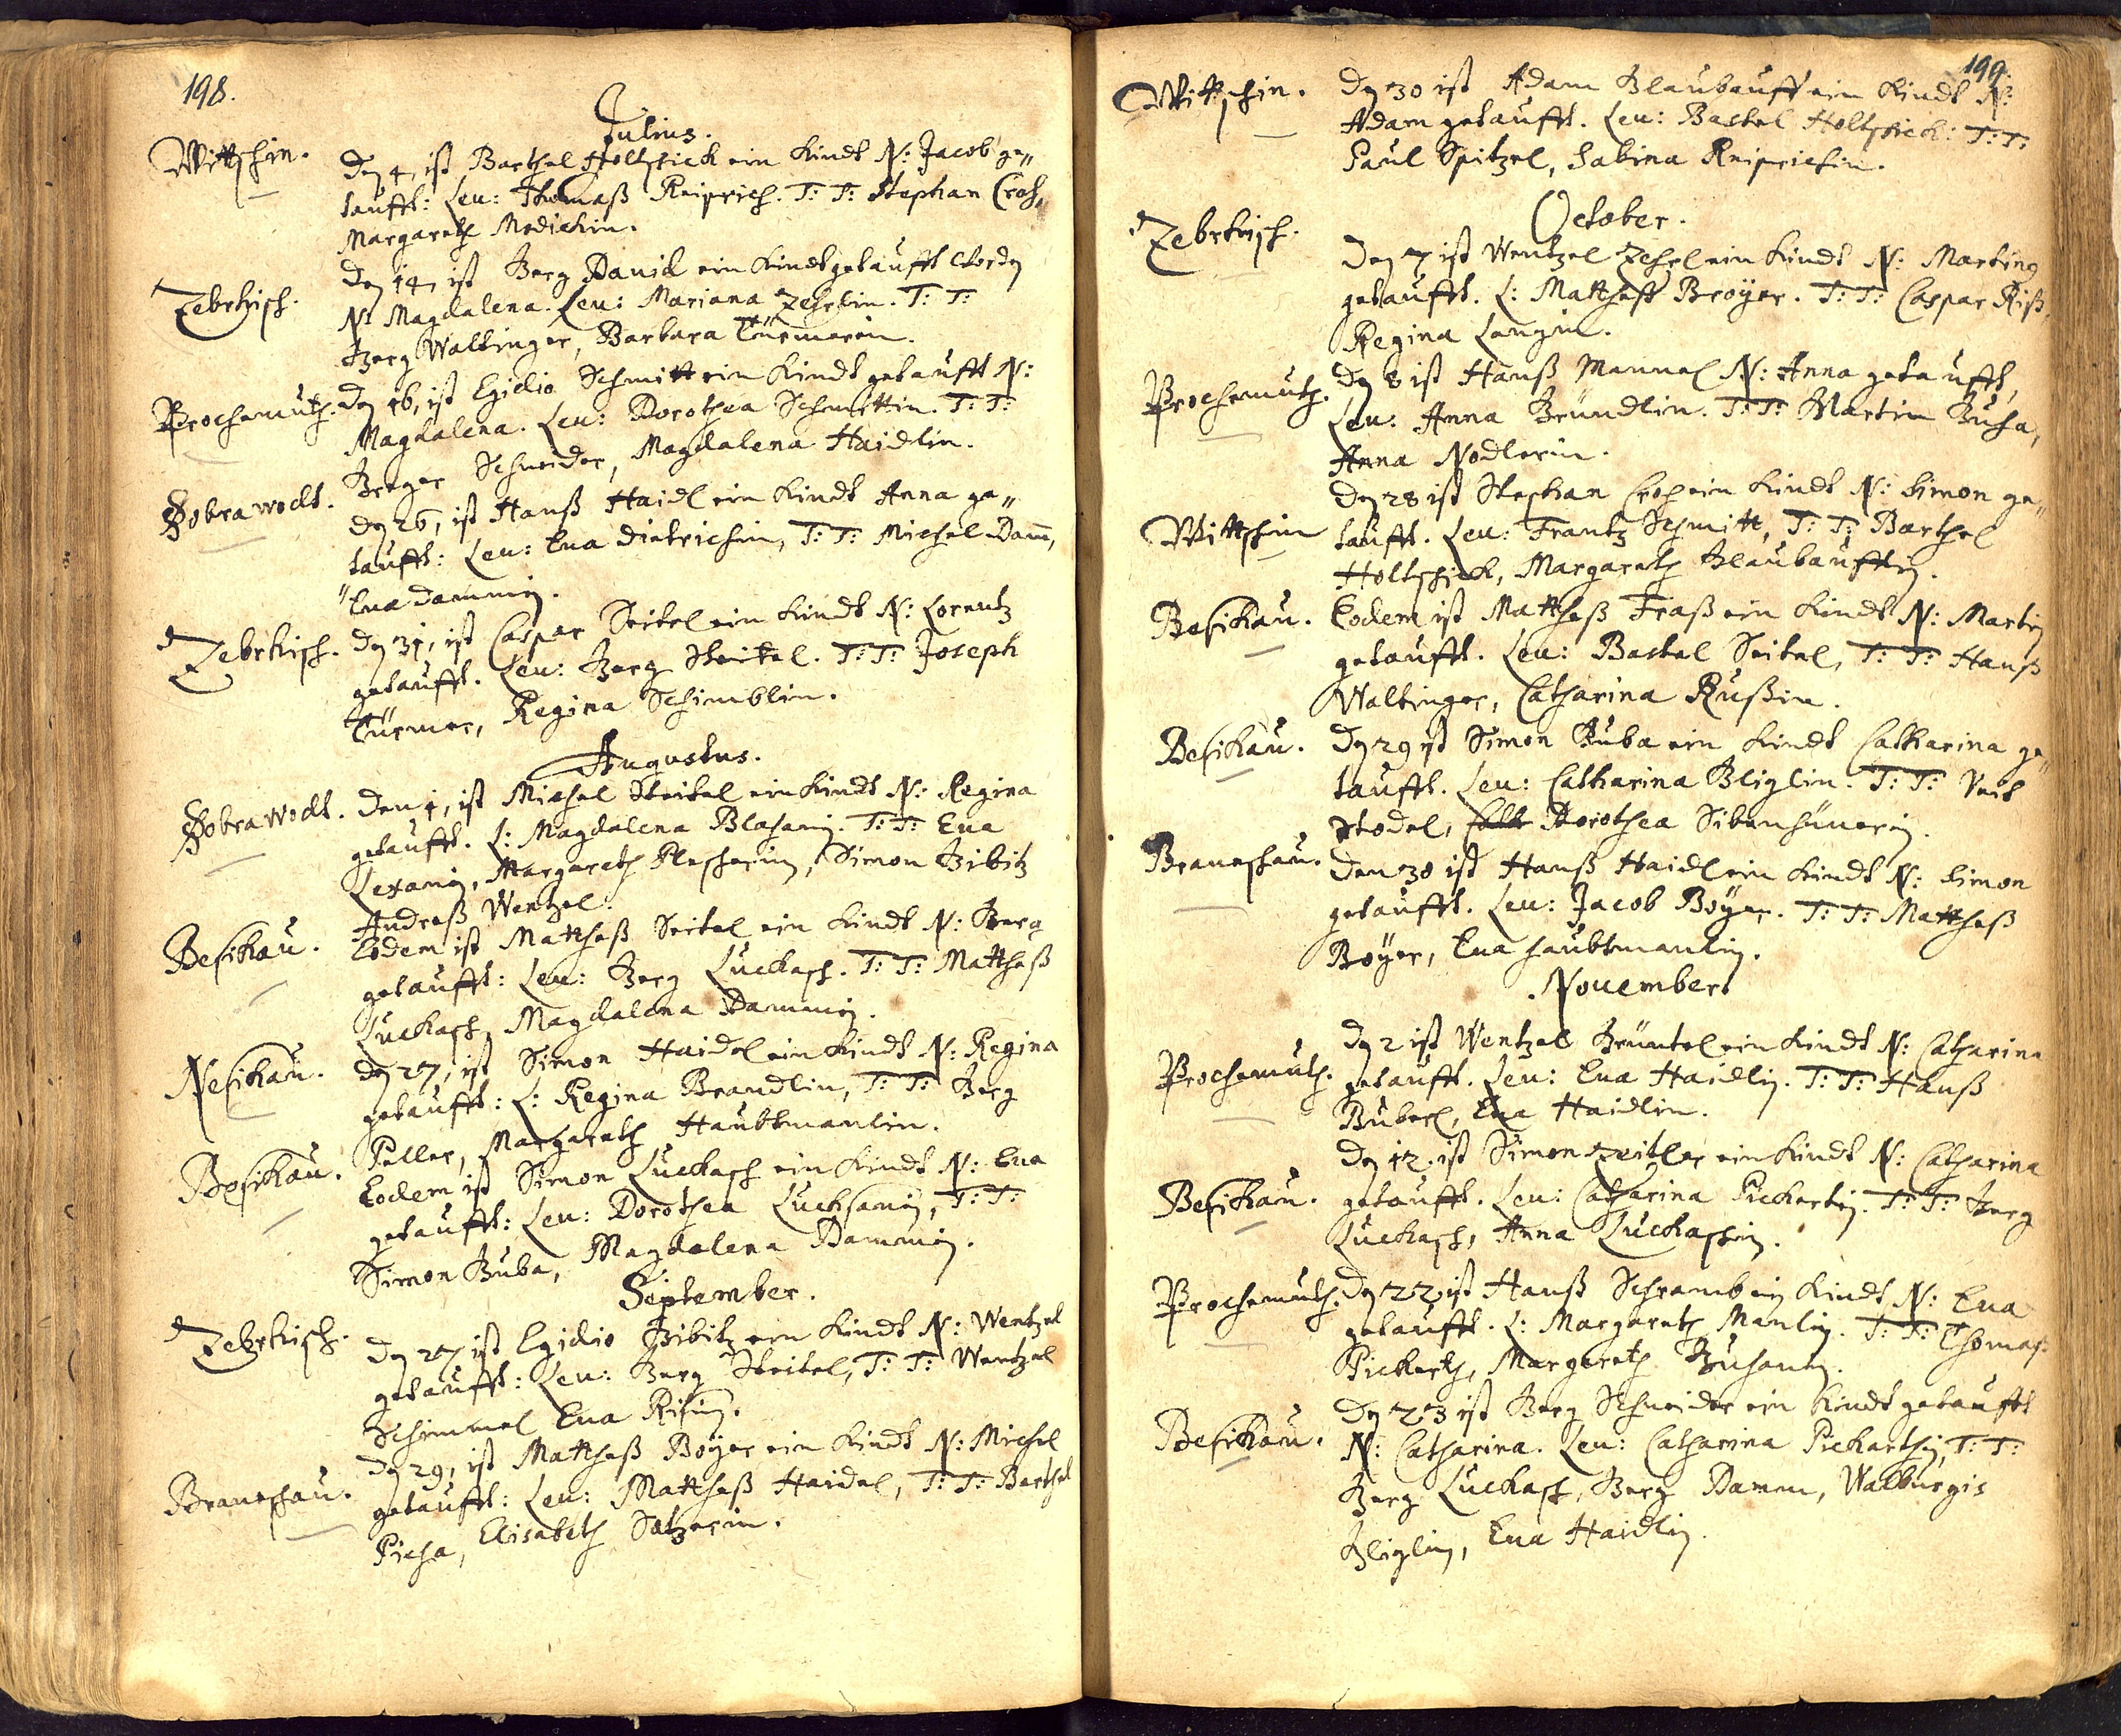 198.
Julius.
Wittschin. Den 4, ist Barthel Holtschick ein Kindt N: Jacob ge„
taufft: Leu: Thomaß Reiprich. T: T: Stephan Cros,
Margareth Modickin.
Zebrkisch. Den 14, ist Jerg Dauid ein Kindt getaufft
N: Magdalena. Leu: Mariana Zehrlin. T: T:
Jerg Waltinger, Barbara Türmerin.
Prochomuth. Den 16, ist Egidio Schmitt ein Kindt getaufft N:
Magdalena. Leu: Dorothea Schmittin. T: T:
Greger Schneider, Magdalena Haidlin.
Dobrawodt. Den 26, ist Hanß Haidl ein Kindt Anna ge„
taufft: Leu: Eua Dietrichin, T: T: Michel Dam̄,
Eua Dammin.
Zebrkisch. Den 31, ist Caspar Seitel ein Kindt N: Lorentz
getaufft. Leu: Jerg Steitel. T: T: Joseph
Türmer, Regina Schimblin.
Augustus.
Dobrawodt. Den 1, ist Michel Steitel ein Kindt N: Regina
getaufft. L: Magdalena Blahanin. T: T: Eua
Lexanin, Margareth Plescherin, Simon Zibitz
Andreß Wentzel.
Besikau. Eodem ist Mattheß Seitel ein Kindt N: Jerg
getaufft: Leu: Jerg Luckasch. T: T: Mattheß
Luckasch, Magdalena Dammin.
Nesikau. Den 27, ist Simon Haidel ein Kindt N: Regina
getaufft: L: Regina Brandlin, T: T: Jerg
Peller, Margareth Haubtmanlin.
Besikau. Eodem ist Simon Luckasch ein Kindt N: Eua
getaufft: Leu: Dorothea Luckschanin, T: T:
Simon Buba, Magdalena Dammin.
September.
Zebrkisch. Den 27 ist Egidio Zibitz ein Kindt N: Wentzel
getaufft: Leu: Jerg Steitel, T: T: Wentzel
Schimmel Eua Rißin.
Branischau. Den 29, ist Mattheß Böyer ein Kindt N: Michel
getaufft: Leu: Mattheß Haidel, T: T: Barthel
Picha, Elisabeth Satzerin.
199.
Wittschin. Den 30 ist Adam Blaubauff ein Kindt N:
Adam getaufft. Leu: Bastel Holtschick: T: T:
Paul Spitzel, Sabina Reiprichin.
October.
Zebrkisch. Den 7 ist Wentzel Zehrl ein Kindt N: Marting
getaufft. L: Mattheß Bröyer. T: T: Caspar Riß,
Regina Langin.
Prochomuth. Den 8 ist Hanß Mannel N: Anna getaufft,
Leu: Anna Gründlin. T: T: Martin Buha,
Anna Nodlerin.
Wittschin Den 28 ist Stephan Cros ein Kindt N: Simon ge„
taufft. Leu: Frantz Schmitt, T: T: Barthel
Holtschick, Margareth Blaubaufftin.
Besikau. Eodem ist Mattheß Fraß ein Kindt N: Martin
getaufft. Leu: Bastel Seitel, T: T: Hanß
Waltinger, Catharina Rußin.
Besikau. Den 29 ist Simon Buba ein Kindt Catharina ge„
taufft. Leu: Catharina Gliglin. T: T: Veit
Stodel, Dorothea Sibenhünerin.
Branischau. Den 30 ist Hanß Haidl ein Kindt N: Simon
getaufft. Leu: Jacob Böyer. T: T: Mattheß
Böyer, Eua Haubtmanlin.
Nouember.
Prochomuth. Den 2 ist Wentzel Gründel ein Kindt N: Catharina
getaufft. Leu: Eua Haidlin. T: T: Hanß
Buberl, Eua Haidlin.
Besikau. Den 12 ist Simon Zeitler ein Kindt N: Catharina
getaufft. Leu: Catharina Pickertin. T: T: Jerg
Luckasch, Anna Luckaschin.
Prochomuth. Den 22 ist Hanß Schramb ein Kindt N: Eua
getaufft. L: Margareth Manlin. T: T: Thomaß
Pickerth, Margareth Buhanin.
Besikau. Den 23 ist Jerg Schneider ein Kindt getaufft
N: Catharina. Leu: Catharina Pickarthin, T: T:
Jerg Luckasch, Jerg Damm, Walburgis
Gliglin, Eua Haidlin.